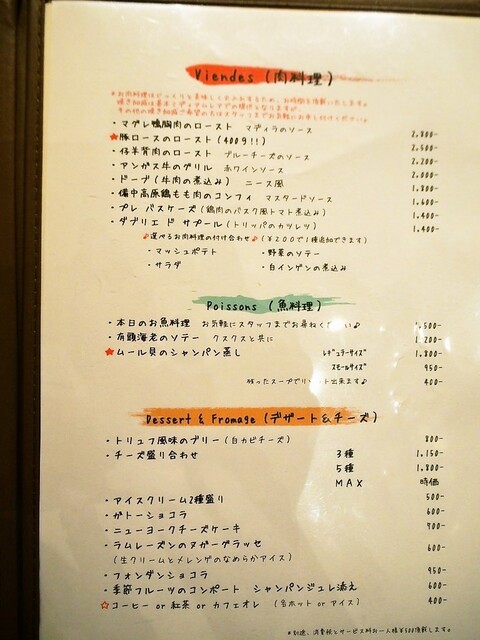 Viendes (肉料理)
・マグレ鴨胸肉のロースト マディラのソース 2,800-
★豚ロースのロースト (400g!!) 2,500-
・仔羊背肉のロースト ブルーチーズのソース 2,500-
・アンガス牛のグリル 赤ワインソース 2,200-
・ドーブ (牛肉の煮込み) ニース風 2,000-
・備中高原鶏もも肉のコンフィ マスタードソース 1,800-
・プレ バスケーズ (鶏肉のバスク風トマト煮込み) 1,600-
・ダブリエ ド サプール (トリッパのカツレツ) 1,400-
♪選べるお肉料理の付け合わせ♪ (¥200で1種追加できます)
・マッシュポテト ・野菜のソテー
・サラダ ・白インゲンの煮込み
Poissons (魚料理)
・本日のお魚料理 お気軽にスタッフまでお尋ねください♪ 1,500-
・有頭海老のソテー クスクスと共に 1,200-
★ムール貝のシャンパン蒸し レギュラーサイズ 1,800-
スモールサイズ 950-
残ったスープでリゾット出来ます♪ 400-
Dessert & Fromage (デザート&チーズ)
・トリュフ風味のブリー (白カビチーズ) 800-
・チーズ盛り合わせ 3種 1,150-
5種 1,800-
MAX 時価
・アイスクリーム2種盛り 500-
・ガトーショコラ 600-
・ニューヨークチーズケーキ 700-
・ラムレーズンのヌガーグラッセ 600-
(生クリームとメレンゲのなめらかアイス)
・フォンダンショコラ 950-
・季節フルーツのコンポート シャンパンジュレ添え 600-
☆コーヒー or 紅茶 or カフェオレ (各ホット or アイス) 400-
*別途、消費税とサービス料お一人様¥500頂戴します。